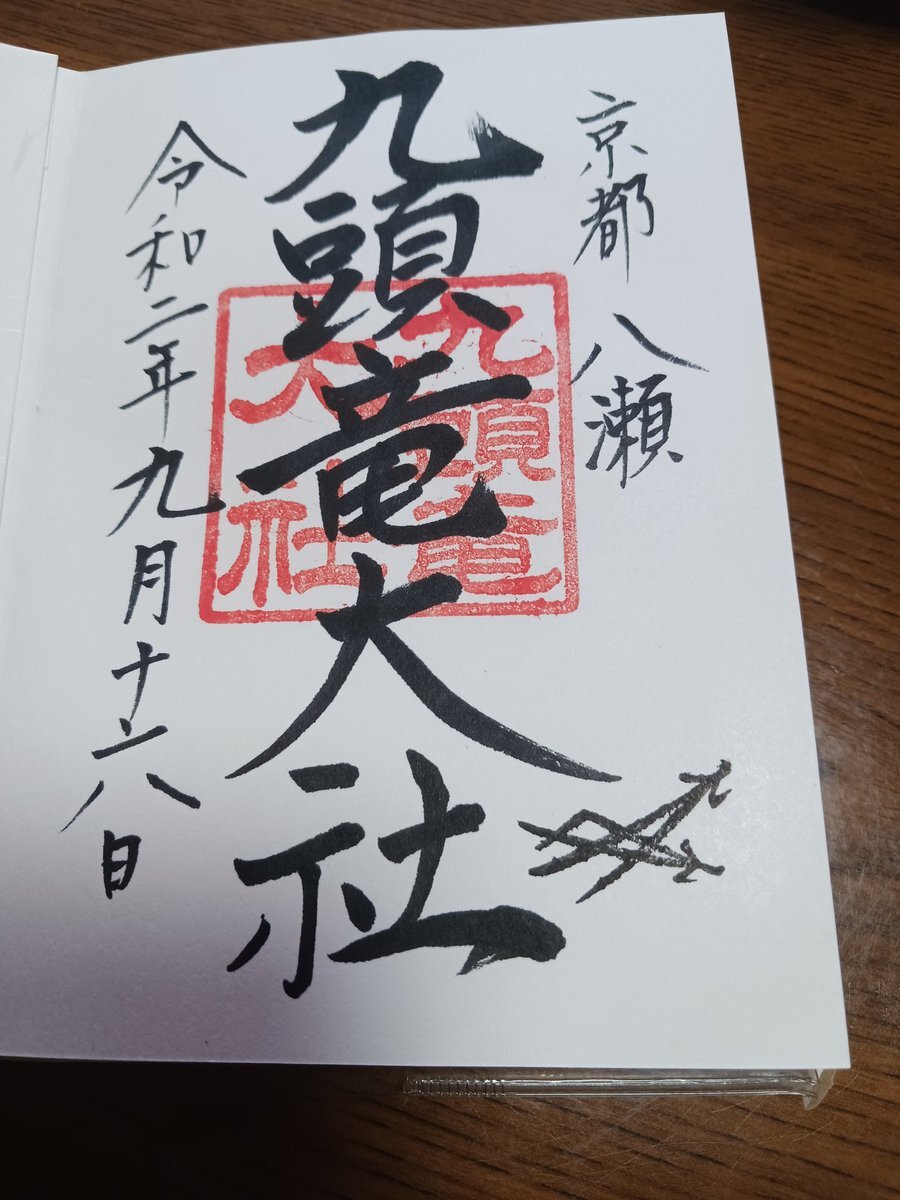 京都 八瀬
九頭竜大社
九頭竜
大社
令和二年九月十六日